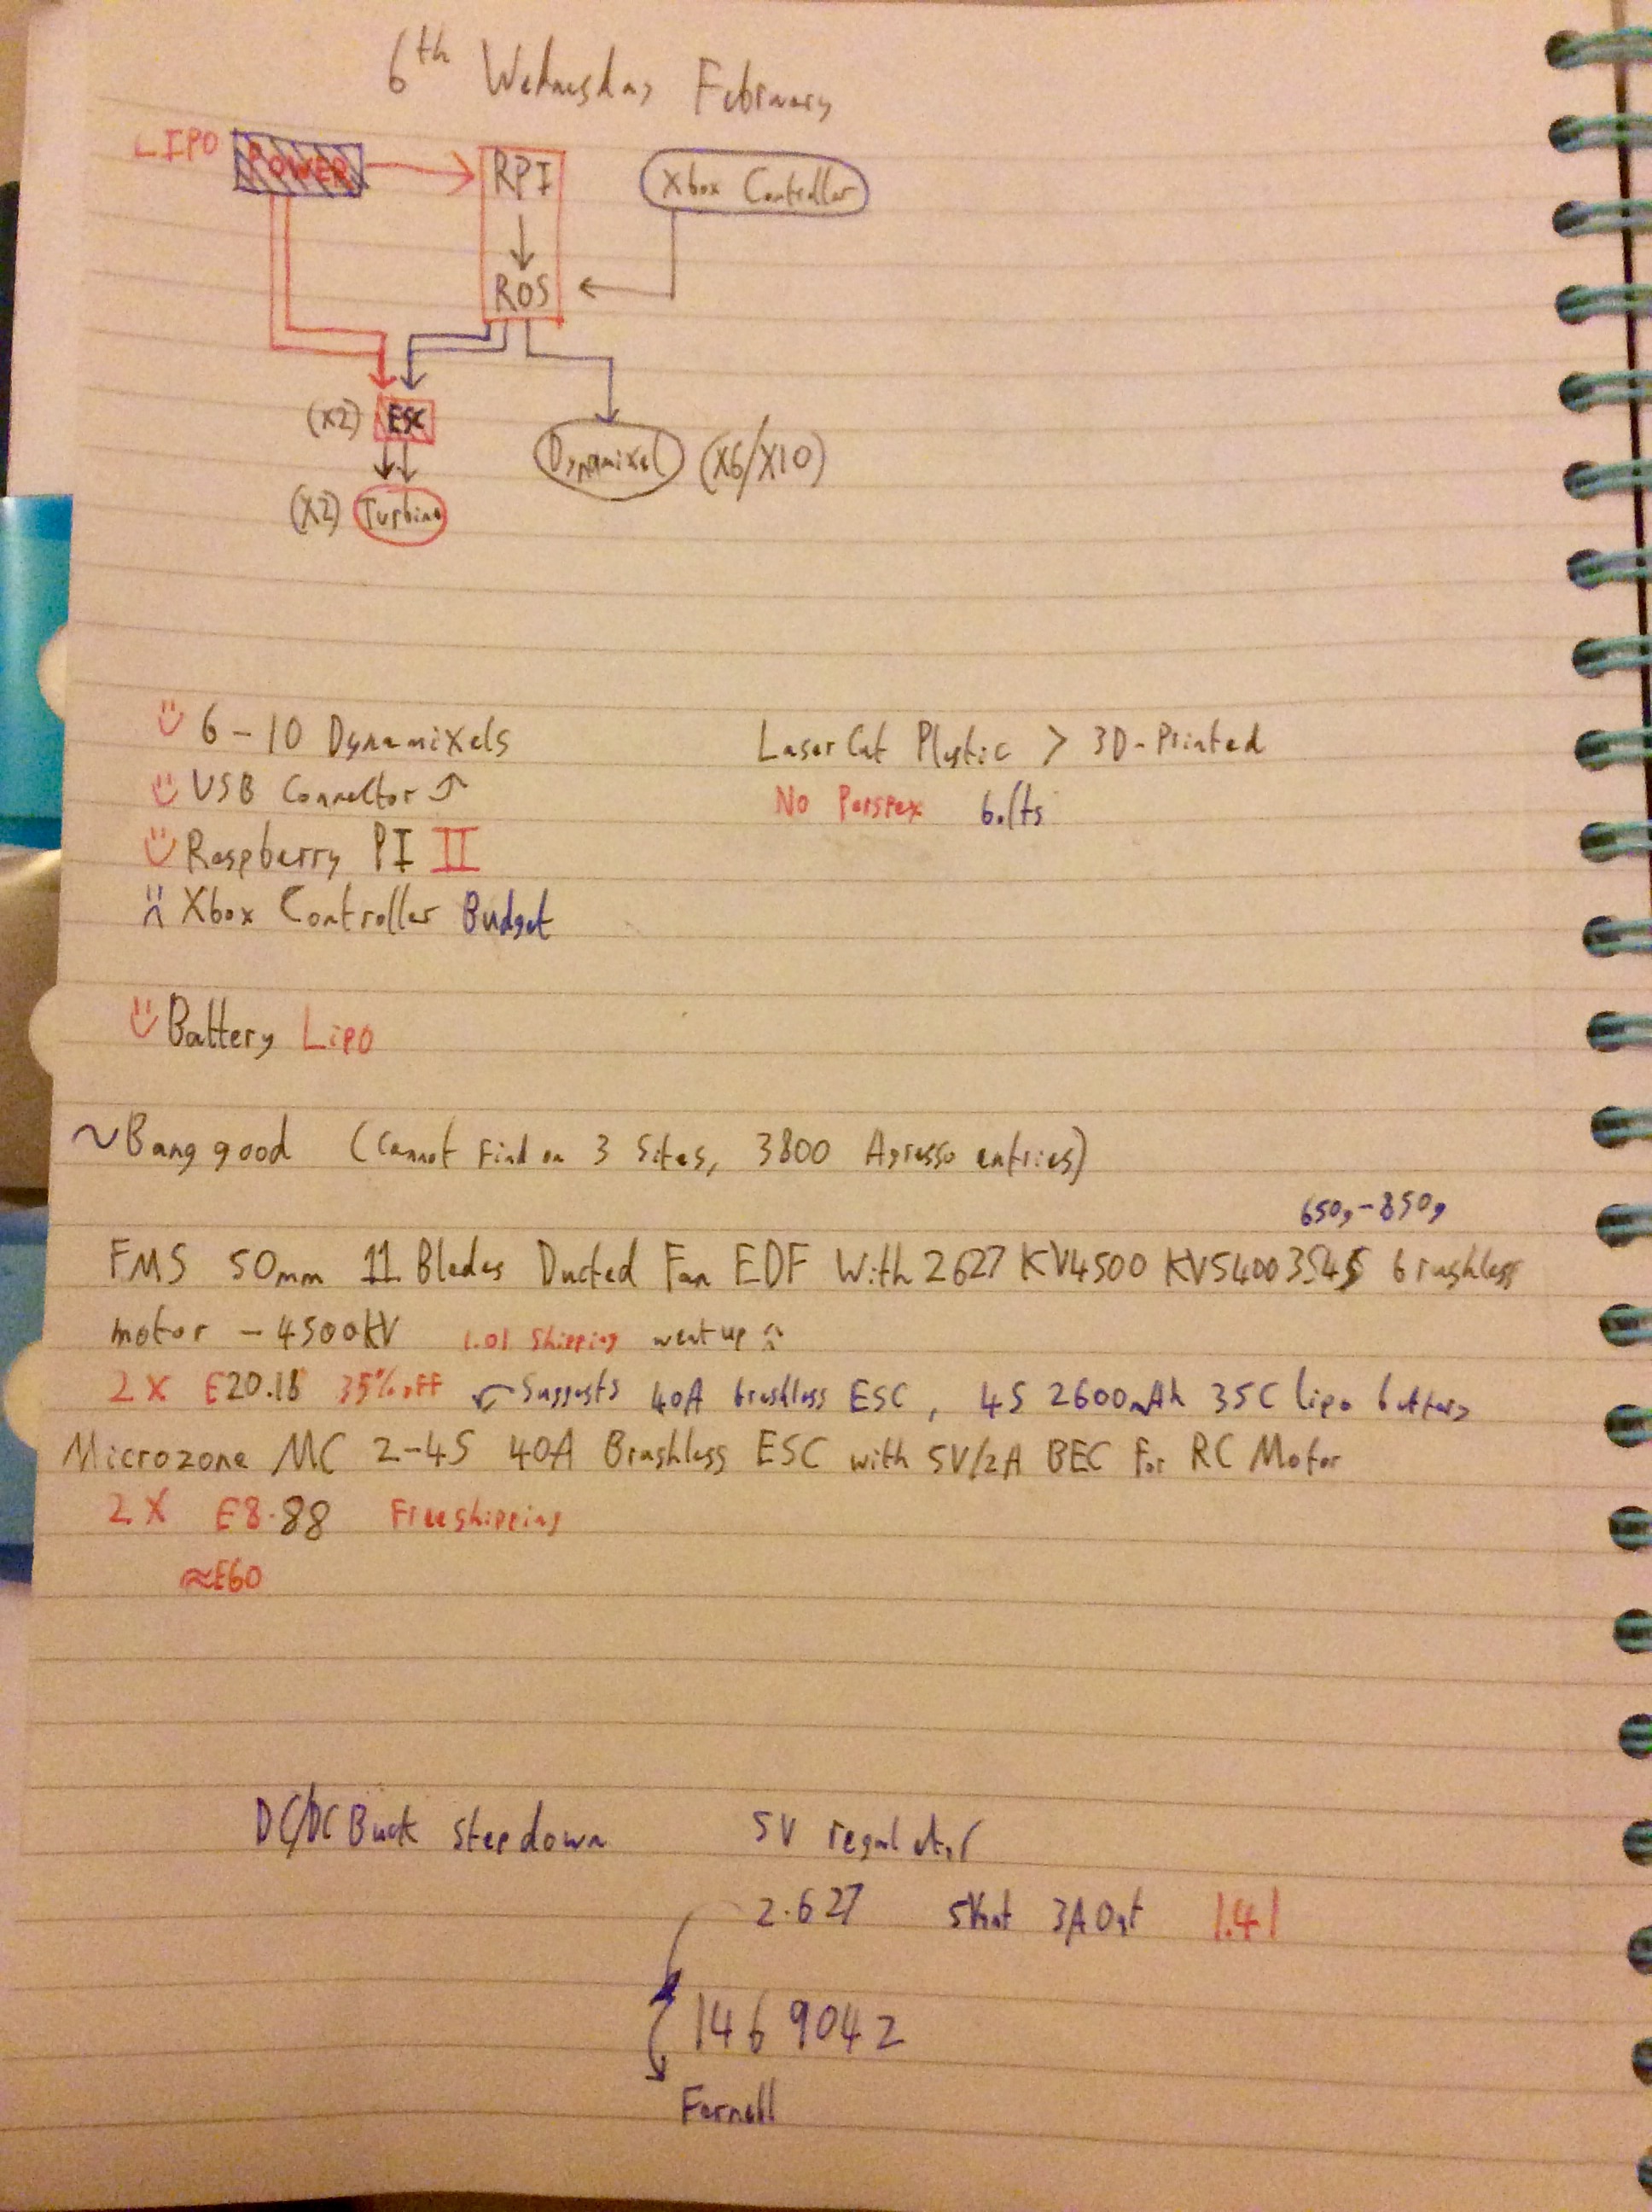 6th Wednesday February
LIPO POWER RPI Xbox Controller
ROS
(X2) ESC
Dynamixel (X6/X10)
(X2) Turbine
6-10 Dynamixels LaserCut Plastic > 3D-Printed
USB Connector No Perspex bolts
Raspberry PI II
Xbox Controller Budget
Battery Lipo
~Bang good (Cannot Find on 3 Sites, 3800 Agresso entries)
650g-850g
FMS 50mm 11 Blades Ducted Fan EDF With 2627 KV4500 KV5400 3S4S brushless
motor - 4500KV 1.01 Shipping went up
2X £20.18 35% off Suggests 40A brushless ESC, 4S 2600mAh 35C lipo battery
Microzone MC 2-4S 40A Brushless ESC with 5V/2A BEC For RC Motor
2X £8.88 Free shipping
≈£60
DC/DC Buck Step down 5V regulator
2.627 3A Out 1.41
1469042
Farnell